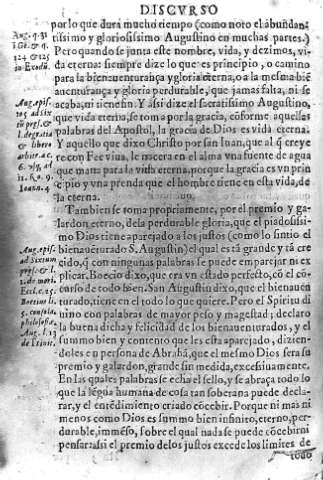 DISCVRSO
por lo que dura mucho tiempo (como noto el abundan
tissimo y gloriosissimo Augustino en muchas partes.)
Pero quando se junta este nombre, vida, y dezimos, vi-
da eterna: siempre dize lo que es principio, o camino
para la bienauenturança y gloria eterna, o a la mesma biē
auenturança y gloria perdurable, que jamas falta, ni se
acaba, ni tiene fin. Y assi dize el sacratissimo Augustino,
que vida eterna, se toma por la gracia, cōforme aquellas
palabras del Apostol, la gracia de Dios es vida eterna.
Y aquello que dixo Christo por san Iuan, que al q̄ creye
re con Fee viua, le nacera en el alma vna fuente de agua
que mana para la vida eterna, porque la gracia es vn prin
cipio y vna prenda que el hombre tiene en esta vida, de
la eterna.
Tambien se toma propriamente, por el premio y ga-
lardon eterno, de la perdurable gloria, que el piadosissi-
mo Dios tiene aparejado a los justos (como lo sintio el
bienauēturado S. Augustin) el qual es tā grande y tā cre
cido, q̄ con ningunas palabras se puede emparejar ni ex
plicar. Boecio dixo, que era vn estado perfecto, cō el cō-
curso de todo bien. San Augustin dixo, que el bienauen
turado, tiene en el todo lo que quiere. Pero el Spiritu di
uino con palabras de mayor peso y magestad; declaro
la buena dicha y felicidad de los bienauenturados, y el
summo bien y contento que les esta aparejado, dizien-
doles en persona de Abrahā, que el mesmo Dios sera su
premio y galardon, grande sin medida, excessiuamente.
En las quales palabras se echa el sello, y se abraça todo lo
que la lēgua humana de cosa tan soberana puede decla-
rar, y el entēdimiento criado cōcebir. Porque ni mas ni
menos como Dios es summo bien infinito, eterno, per-
durable, immēso, sobre el qual nada se puede cōcebir ni
pensar: assi el premio de los justos excede los limites de
todo
Aug. q. 31
Aug. epis.
Ioann. 4
Aug. epis.
ad Sixtum